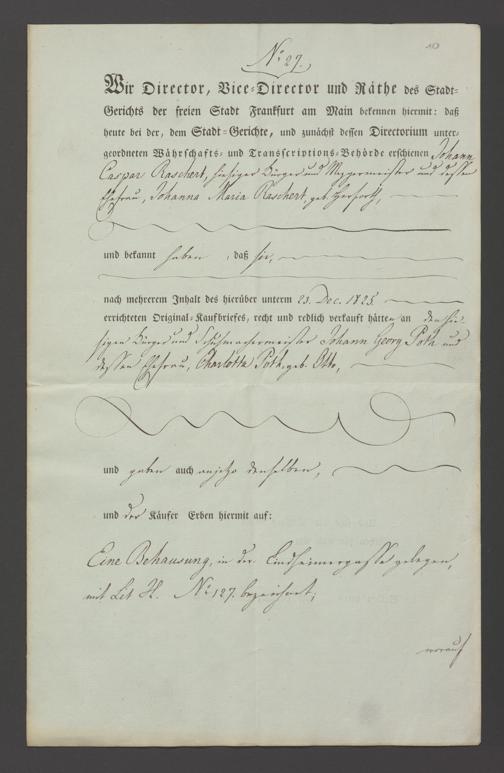 No 27.
Wir Director, Vice-Director und Räthe des Stadt-
Gerichts der freien Stadt Frankfurt am Main bekennen hiermit: daß
heute bei der, dem Stadt-Gerichte, und zunächst dessen Directorium unter-
geordneten Währschafts- und Transcriptions-Behörde erschienen Johann
Caspar Raschert, hiesiger Bürger und Mezgermeister und dessen
Ehefrau, Johanna Maria Raschert, geb.
und bekannt haben, daß sie,
nach mehrerem Inhalt des hierüber unterm 23. Dec. 1825
errichteten Original-Kaufbriefes, recht und redlich verkauft hätten an den hie-
sigen Bürger und Schuhmachermeister Johann Georg Poth und
dessen Ehefrau, Charlotta Poth, geb. Otto,
und gaben auch anjetzo denselben,
und der Käufer Erben hiermit auf:
Eine Behausung, in der Lindheimergasse gelegen,
mit Lit H. No 127. bezeichnet,
worauf